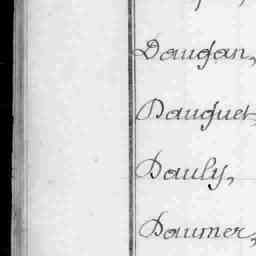 Daugan,
Dauguet,
Dauly,
Daumer,